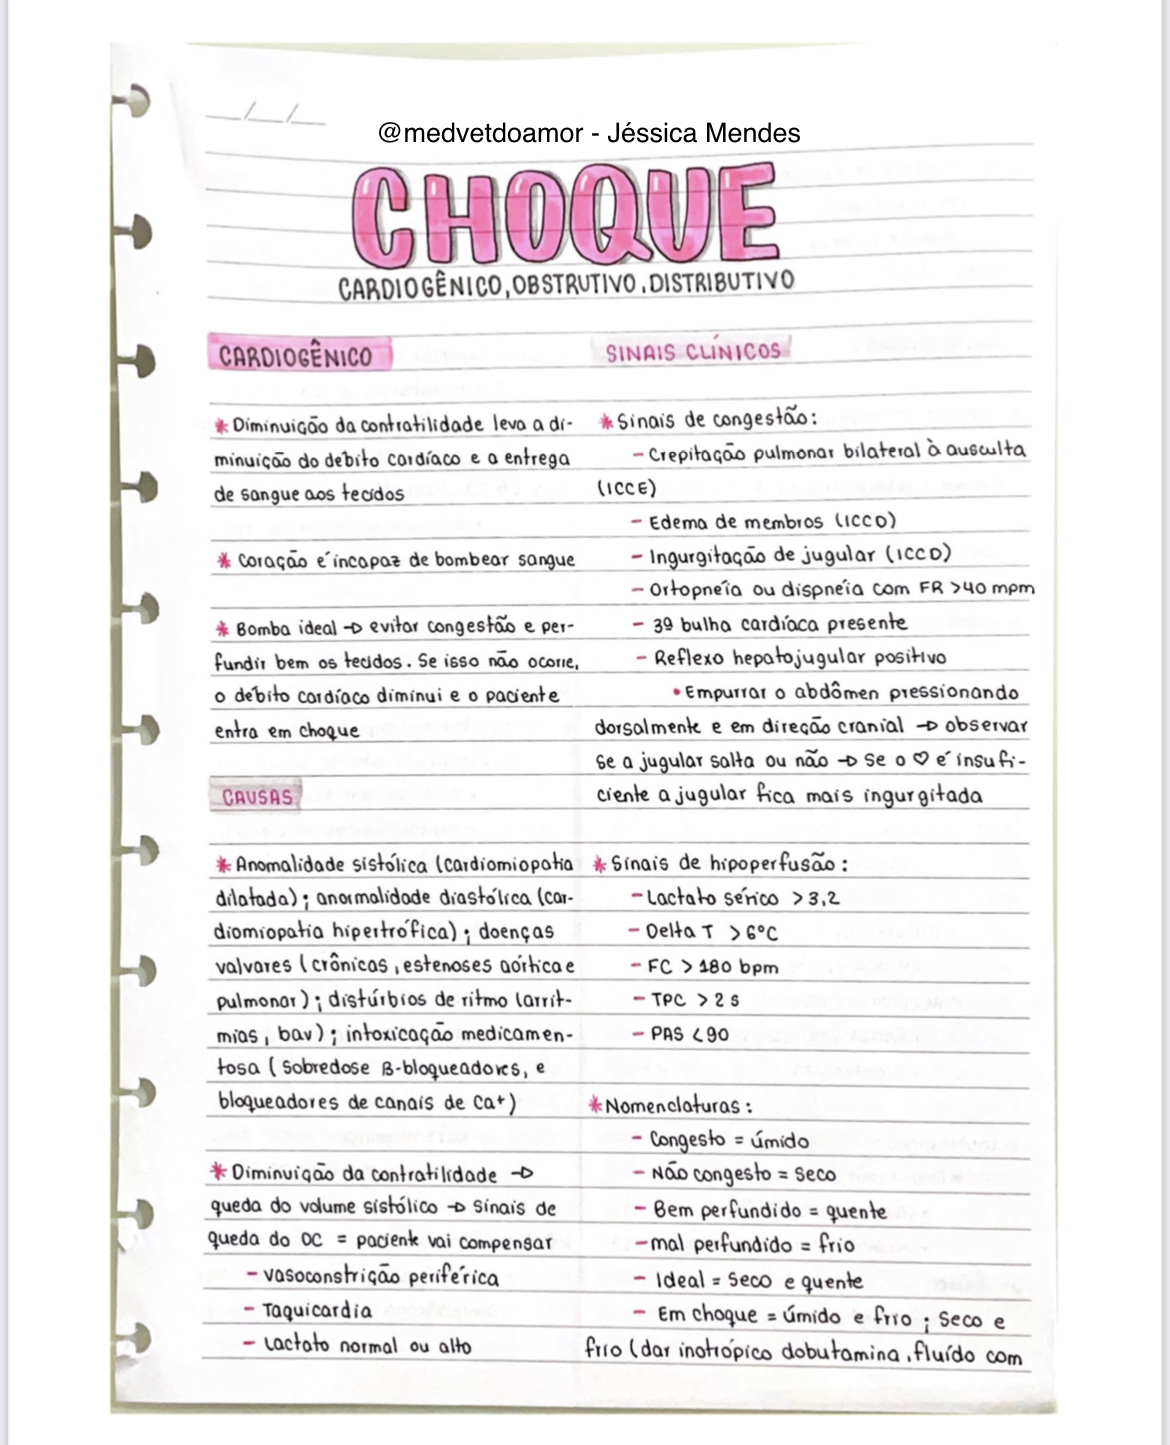 __/__/__
@medvetdoamor - Jéssica Mendes
CHOQUE
CARDIOGÊNICO, OBSTRUTIVO, DISTRIBUTIVO
CARDIOGÊNICO
* Diminuição da contratilidade leva a di-
minuição do débito cardíaco e a entrega
de sangue aos tecidos
* Coração é incapaz de bombear sangue
* Bomba ideal → evitar congestão e per-
fundir bem os tecidos. Se isso não ocorre,
o débito cardíaco diminui e o paciente
entra em choque
CAUSAS
* Anomalidade sistólica (cardiomiopatia
dilatada); anormalidade diastólica (car-
diomiopatia hipertrófica); doenças
valvares (crônicas, estenoses aórtica e
pulmonar); distúrbios de ritmo (arrit-
mias, bav); intoxicação medicamen-
tosa (sobredose B-bloqueadores, e
bloqueadores de canais de Ca+)
* Diminuição da contratilidade →
queda do volume sistólico → sinais de
queda do DC = paciente vai compensar
- vasoconstrição periférica
- Taquicardia
- Lactato normal ou alto
SINAIS CLÍNICOS
* Sinais de congestão:
- Crepitação pulmonar bilateral à ausculta
(ICCE)
- Edema de membros (ICCD)
- Ingurgitação de jugular (ICCD)
- Ortopneia ou dispneia com FR >40 mpm
- 3º bulha cardíaca presente
- Reflexo hepatojugular positivo
• Empurrar o abdômen pressionando
dorsalmente e em direção cranial → observar
se a jugular salta ou não → se o ♡ é insufi-
ciente a jugular fica mais ingurgitada
* Sinais de hipoperfusão:
- Lactato sérico >3,2
- Delta T >6°C
- FC > 180 bpm
- TPC > 2 s
- PAS <90
* Nomenclaturas:
- Congesto = úmido
- Não congesto = seco
- Bem perfundido = quente
- mal perfundido = frio
- Ideal = seco e quente
- Em choque = úmido e frio; seco e
frio (dar inotrópico dobutamina, fluído com